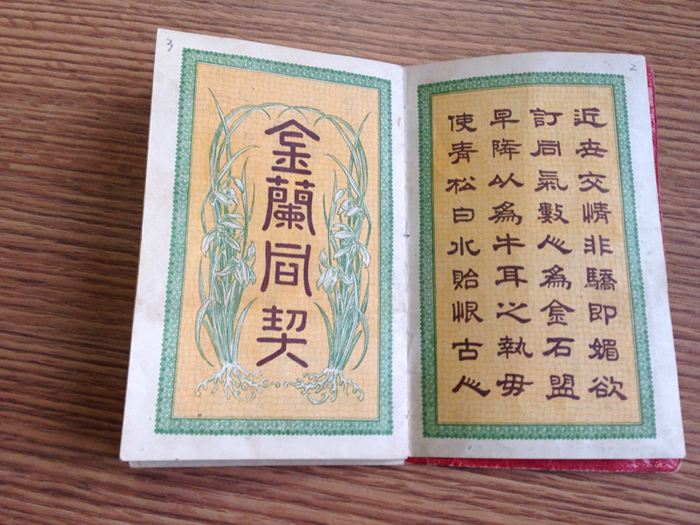 2
近世交情非驕即媚欲
訂同氣數心爲金石盟
早降以爲牛耳之執毋
使青松白水貽恨古心
3
金蘭同契